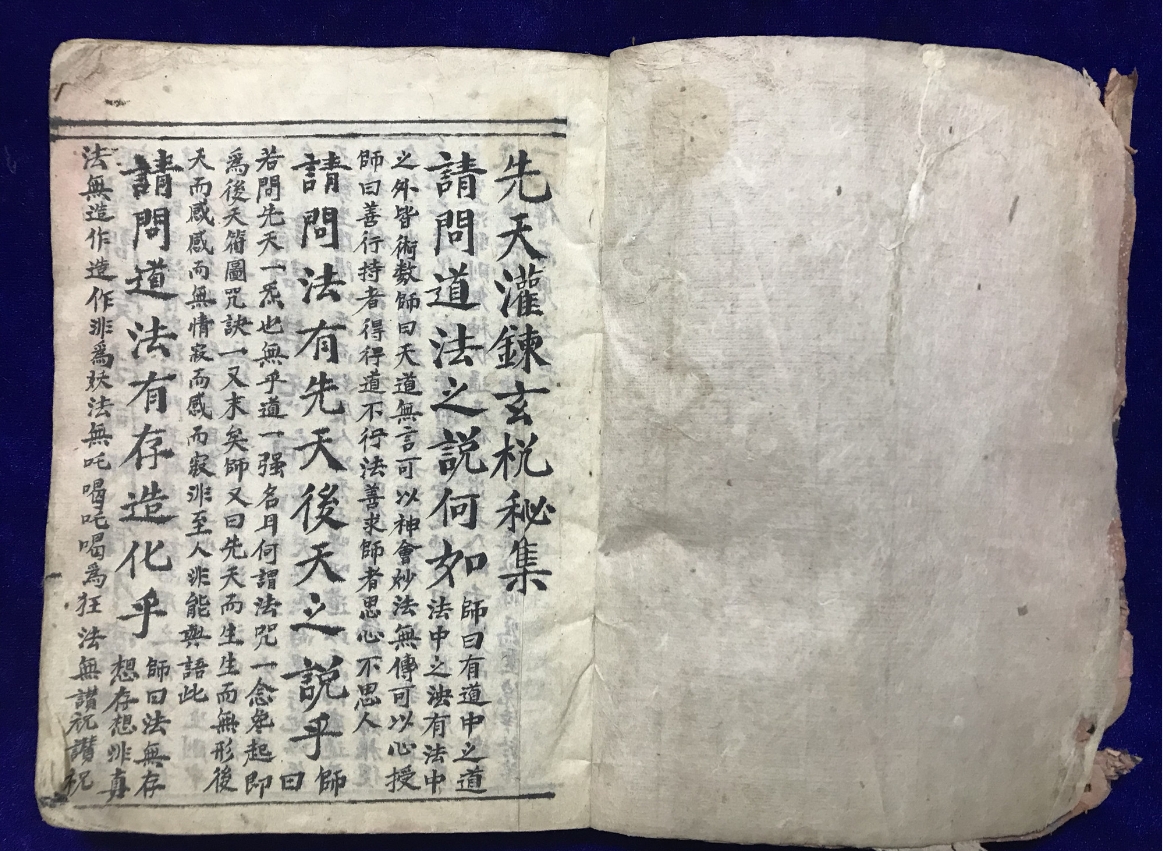 先天灌鍊玄棁秘集
請問道法之説何如師曰有道中之道
法中之法有法中
之外皆術数師曰天道無言可以神會妙法無傳可以心授
師曰善行持者得得道不行法善求師者思心不思人
請問法有先天後天之説乎師
曰
若問先天一炁也無乎道一强名月何謂法咒一念㕘起即
為後天符圖咒訣一又末矣師又曰先天而生生而無形後
天而感感而無情寂而感而寂非至人非能與語此
請問道法有存造化乎師曰法無存
想存想非真
法無造作造作非為妖法無叱喝叱喝為狂法無讃祝讃祝